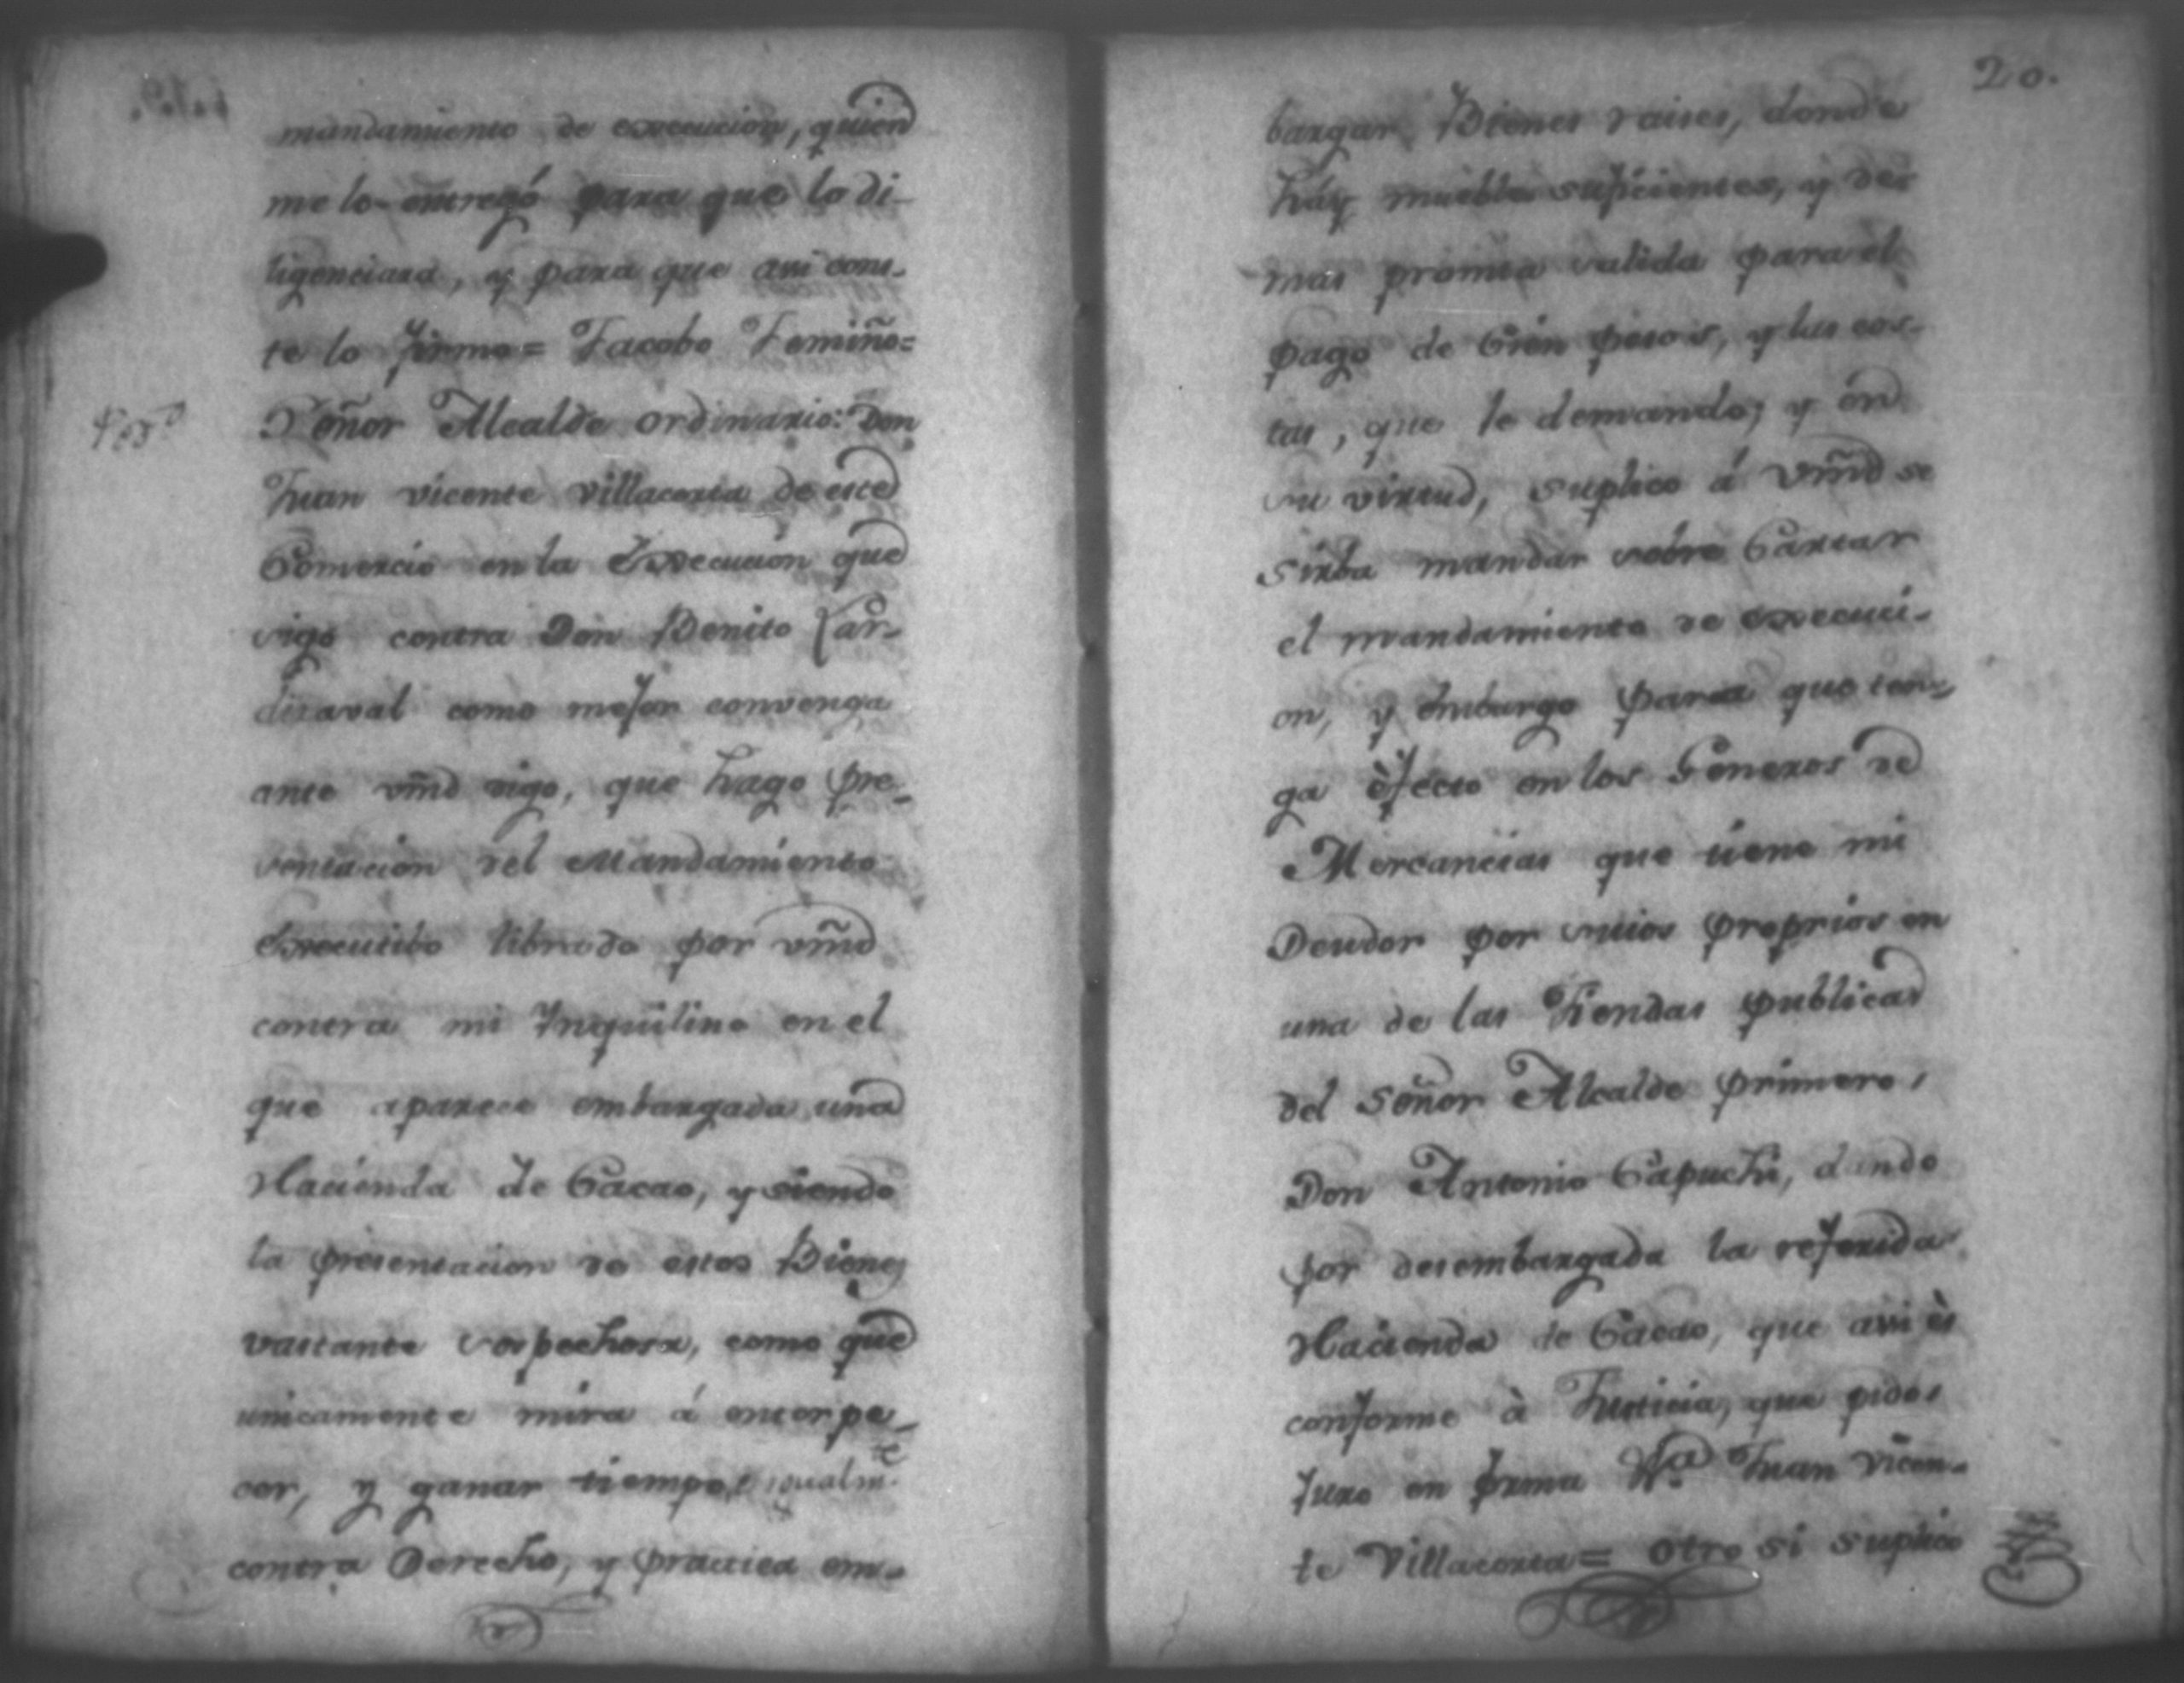 mandamiento de execucion, quien
me lo entregó para que lo di-
ligenciara, y para que asi cons-
te lo firmo = Jacobo Temiño =
Señor Alcalde ordinario: Don
Juan vicente villacorta de este
Comercio en la Execucion que
sigo contra Don Benito
como mejor convenga
ante vmd digo, que hago pre-
sentacion del Mandamiento
Executibo librado por vmd
contra mi Inquilino en el
que aparece embargada una
Hacienda de Cacao, y siendo
la presentacion de estos Bienes
vastante sospechosa, como que
unicamente mira á entorpe-
cer, y ganar tiempo, igualmte
contra Derecho, y practica em-
20.
bargar Bienes raises, donde
hay muebles suficientes, y de
mas promta salida para el
pago de Cien pesos, y las cos-
tas, que le demando; y en
su virtud, suplico á Vmd se
sirba mandar sobre Cartar
el mandamiento de execuci-
on, y embargo para que ten-
ga efecto en los Generos de
Mercancias que tiene mi
Deudor por suios proprios en
una de las Tiendas publicas
del Señor Alcalde primero,
Don Antonio Capuchi, dando
por desembargada la referida
Hacienda de Cacao, que asi és
conforme à Justicia, que pido,
Juro en forma Va Juan Vicen-
te Villacorta = Otro si suplico